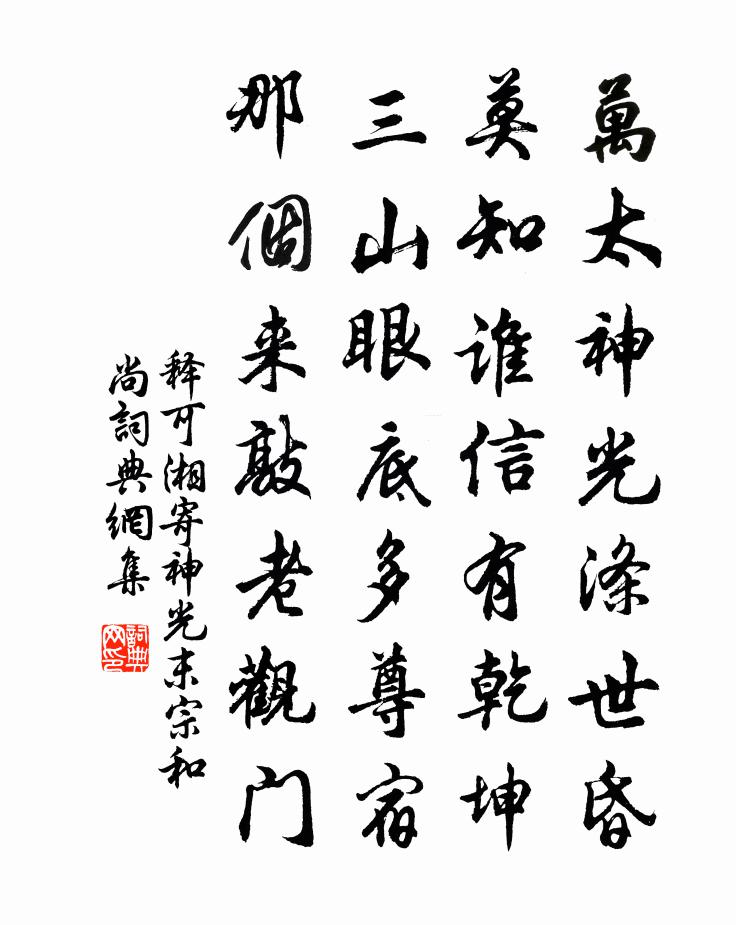 萬太神光滌世昏
莫知誰信有乾坤
三山眼底多尊宿
那個来敲老觀門
释可湘寄神光末宗和
尚詞典網集
詞典网印